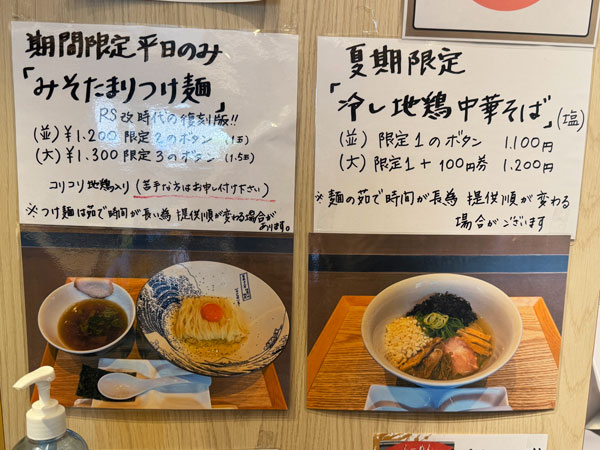 期間限定平日のみ
「みそたまりつけ麺」
RS改時代の復刻版!!
(並) ¥1.200 限定2のボタン (1玉)
(大) ¥1.300 限定3のボタン (1.5玉)
コリコリ地鶏入り (苦手な方はお申し付け下さい)
※つけ麺は茹で時間が長い為 提供順が変わる場合が
あります。
夏期限定
「冷し地鶏中華そば」(塩)
(並) 限定1のボタン 1.100円
(大) 限定1+100円券 1.200円
※麺の茹で時間が長為 提供順が変わる
場合がございます